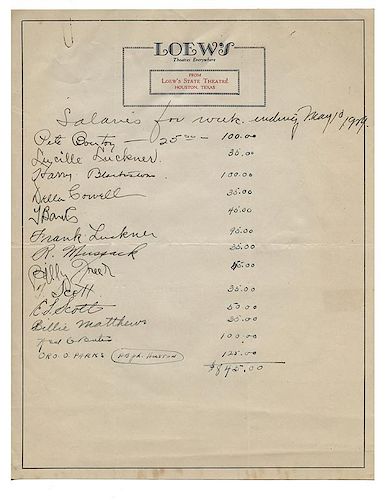 LOEW'S
Theatres Everywhere
FROM
LOEW'S STATE THEATRE
HOUSTON, TEXAS
Salaries for week ending May 10, 1929.
Pete 25.00 — 100.00
Lucille Luckner. 35.00
Harry 100.00
Della Cowell 35.00
40.00
Frank Luckner 95.00
R. Mussack 35.00
Billy 45.00
Scott 35.00
Ed Scott 50.00
Billie Matthews 35.00
100.00
GEO. O. PARKS HOUSTON 125.00
$845.00